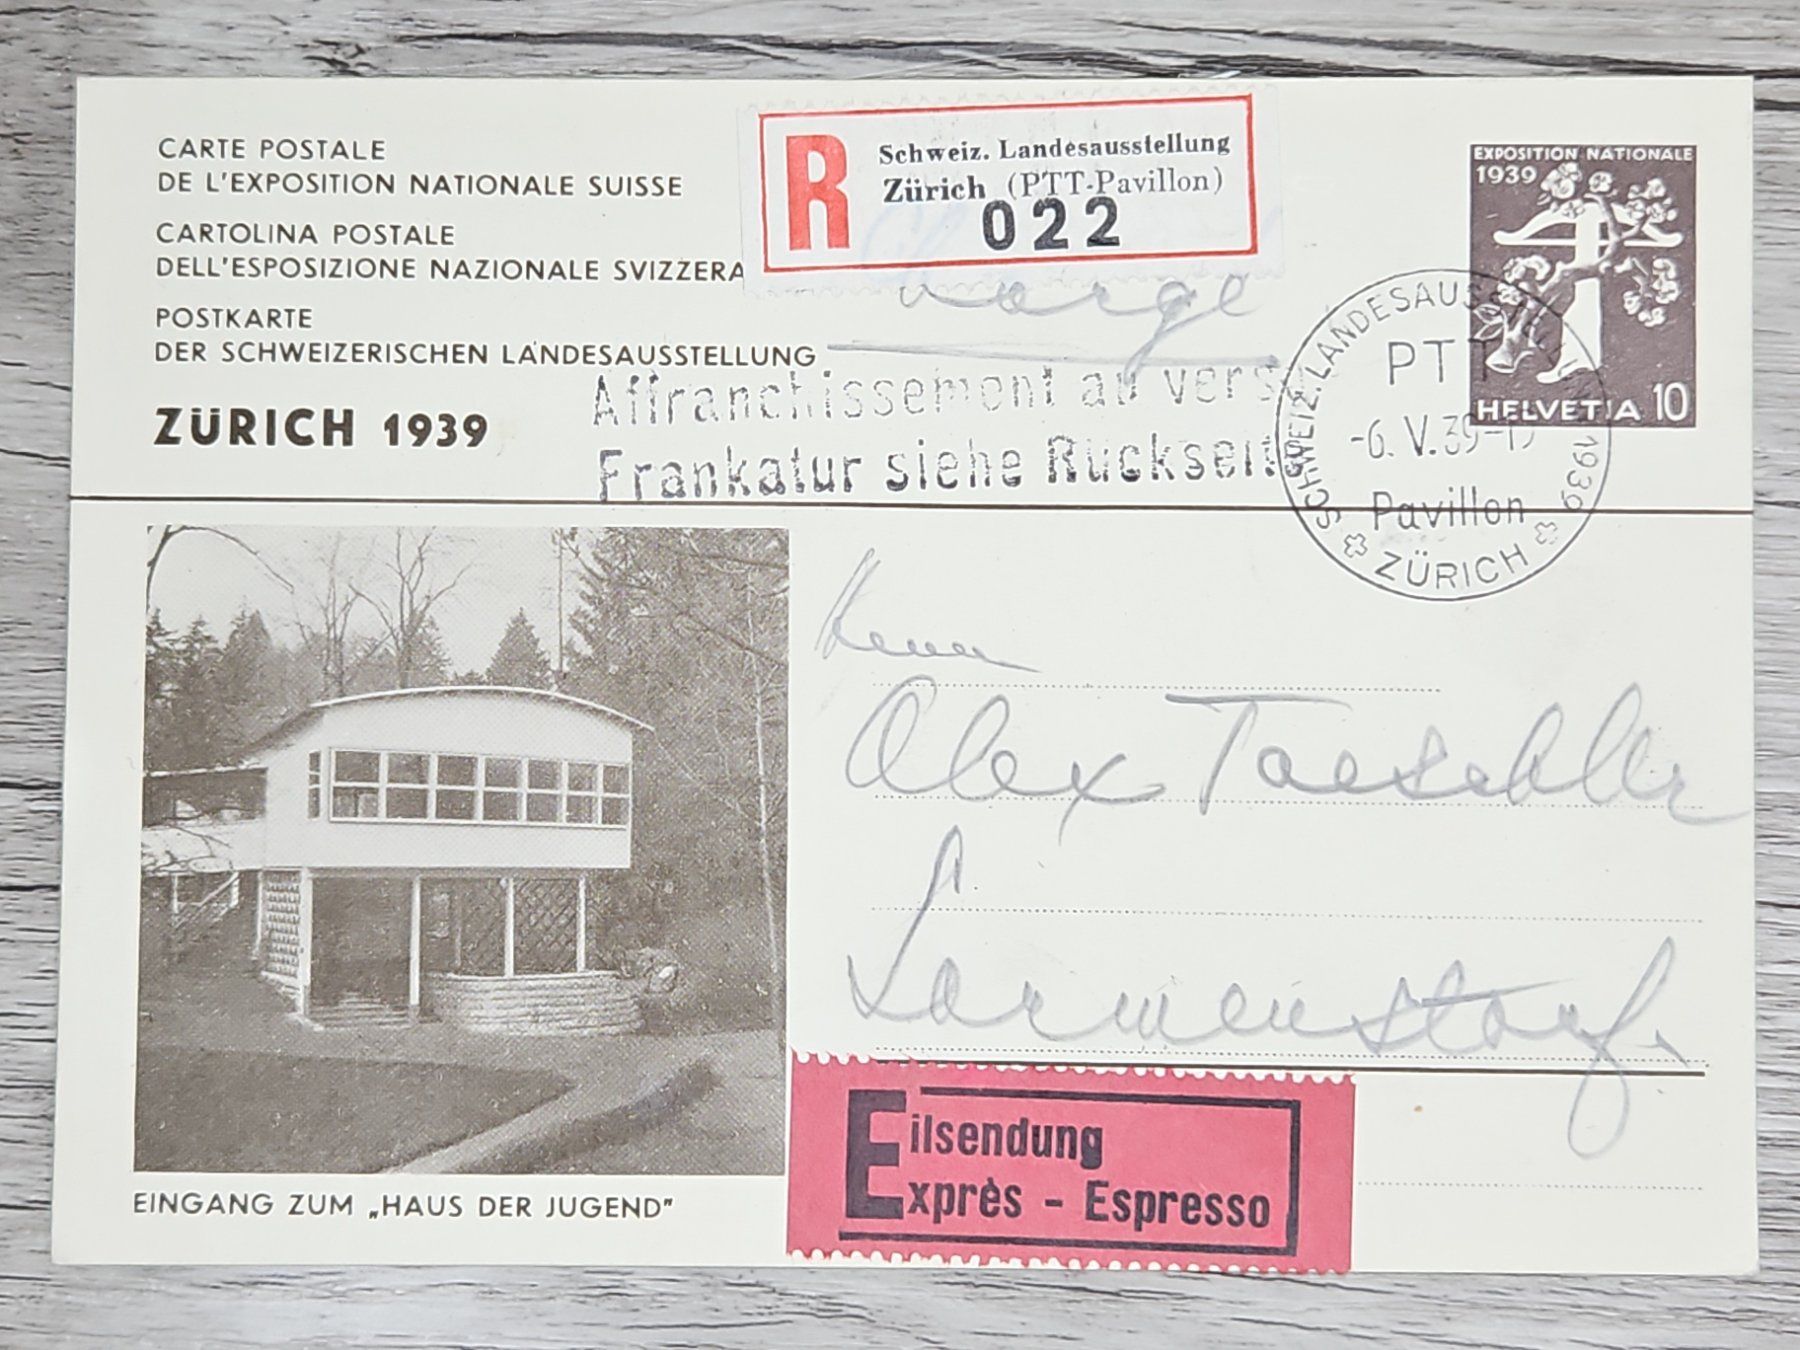 CARTE POSTALE
DE L'EXPOSITION NATIONALE SUISSE
CARTOLINA POSTALE
DELL'ESPOSIZIONE NAZIONALE SVIZZERA
POSTKARTE
DER SCHWEIZERISCHEN LANDESAUSSTELLUNG
ZÜRICH 1939
R
Schweiz. Landesausstellung
Zürich (PTT-Pavillon)
022
EXPOSITION NATIONALE
1939
HELVETIA 10
Charge
Affranchissement au vers
Frankatur siehe Rückseite
SCHWEIZ. LANDESAUSSTELLUNG 1939
PTT
-6. V. 39-
Pavillon
ZÜRICH
Herrn
Alex Taeschler
Sarmenstorf.
EINGANG ZUM „HAUS DER JUGEND"
Eilsendung
Exprès - Espresso